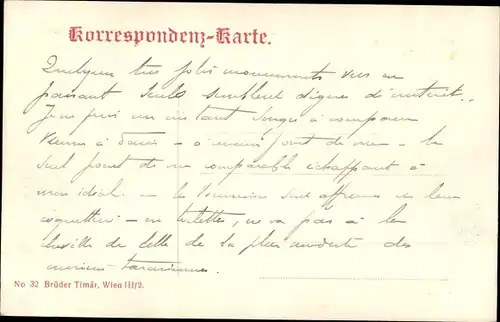 Korrespondenz-Karte.
Quelques très jolis monuments vus en
passant seuls semblent dignes d'intérêt..
Je ne puis un instant songer à comparer
Vienne à Paris - à aucun point de vue - le
seul point de vue comparable échappant à
mon idéal. - les Viennoises sont affreuses et leur
coquetterie - en toilettes, ne va pas à la
cheville de celle de la plus modeste des
No 32 Brüder Timár, Wien III/2.